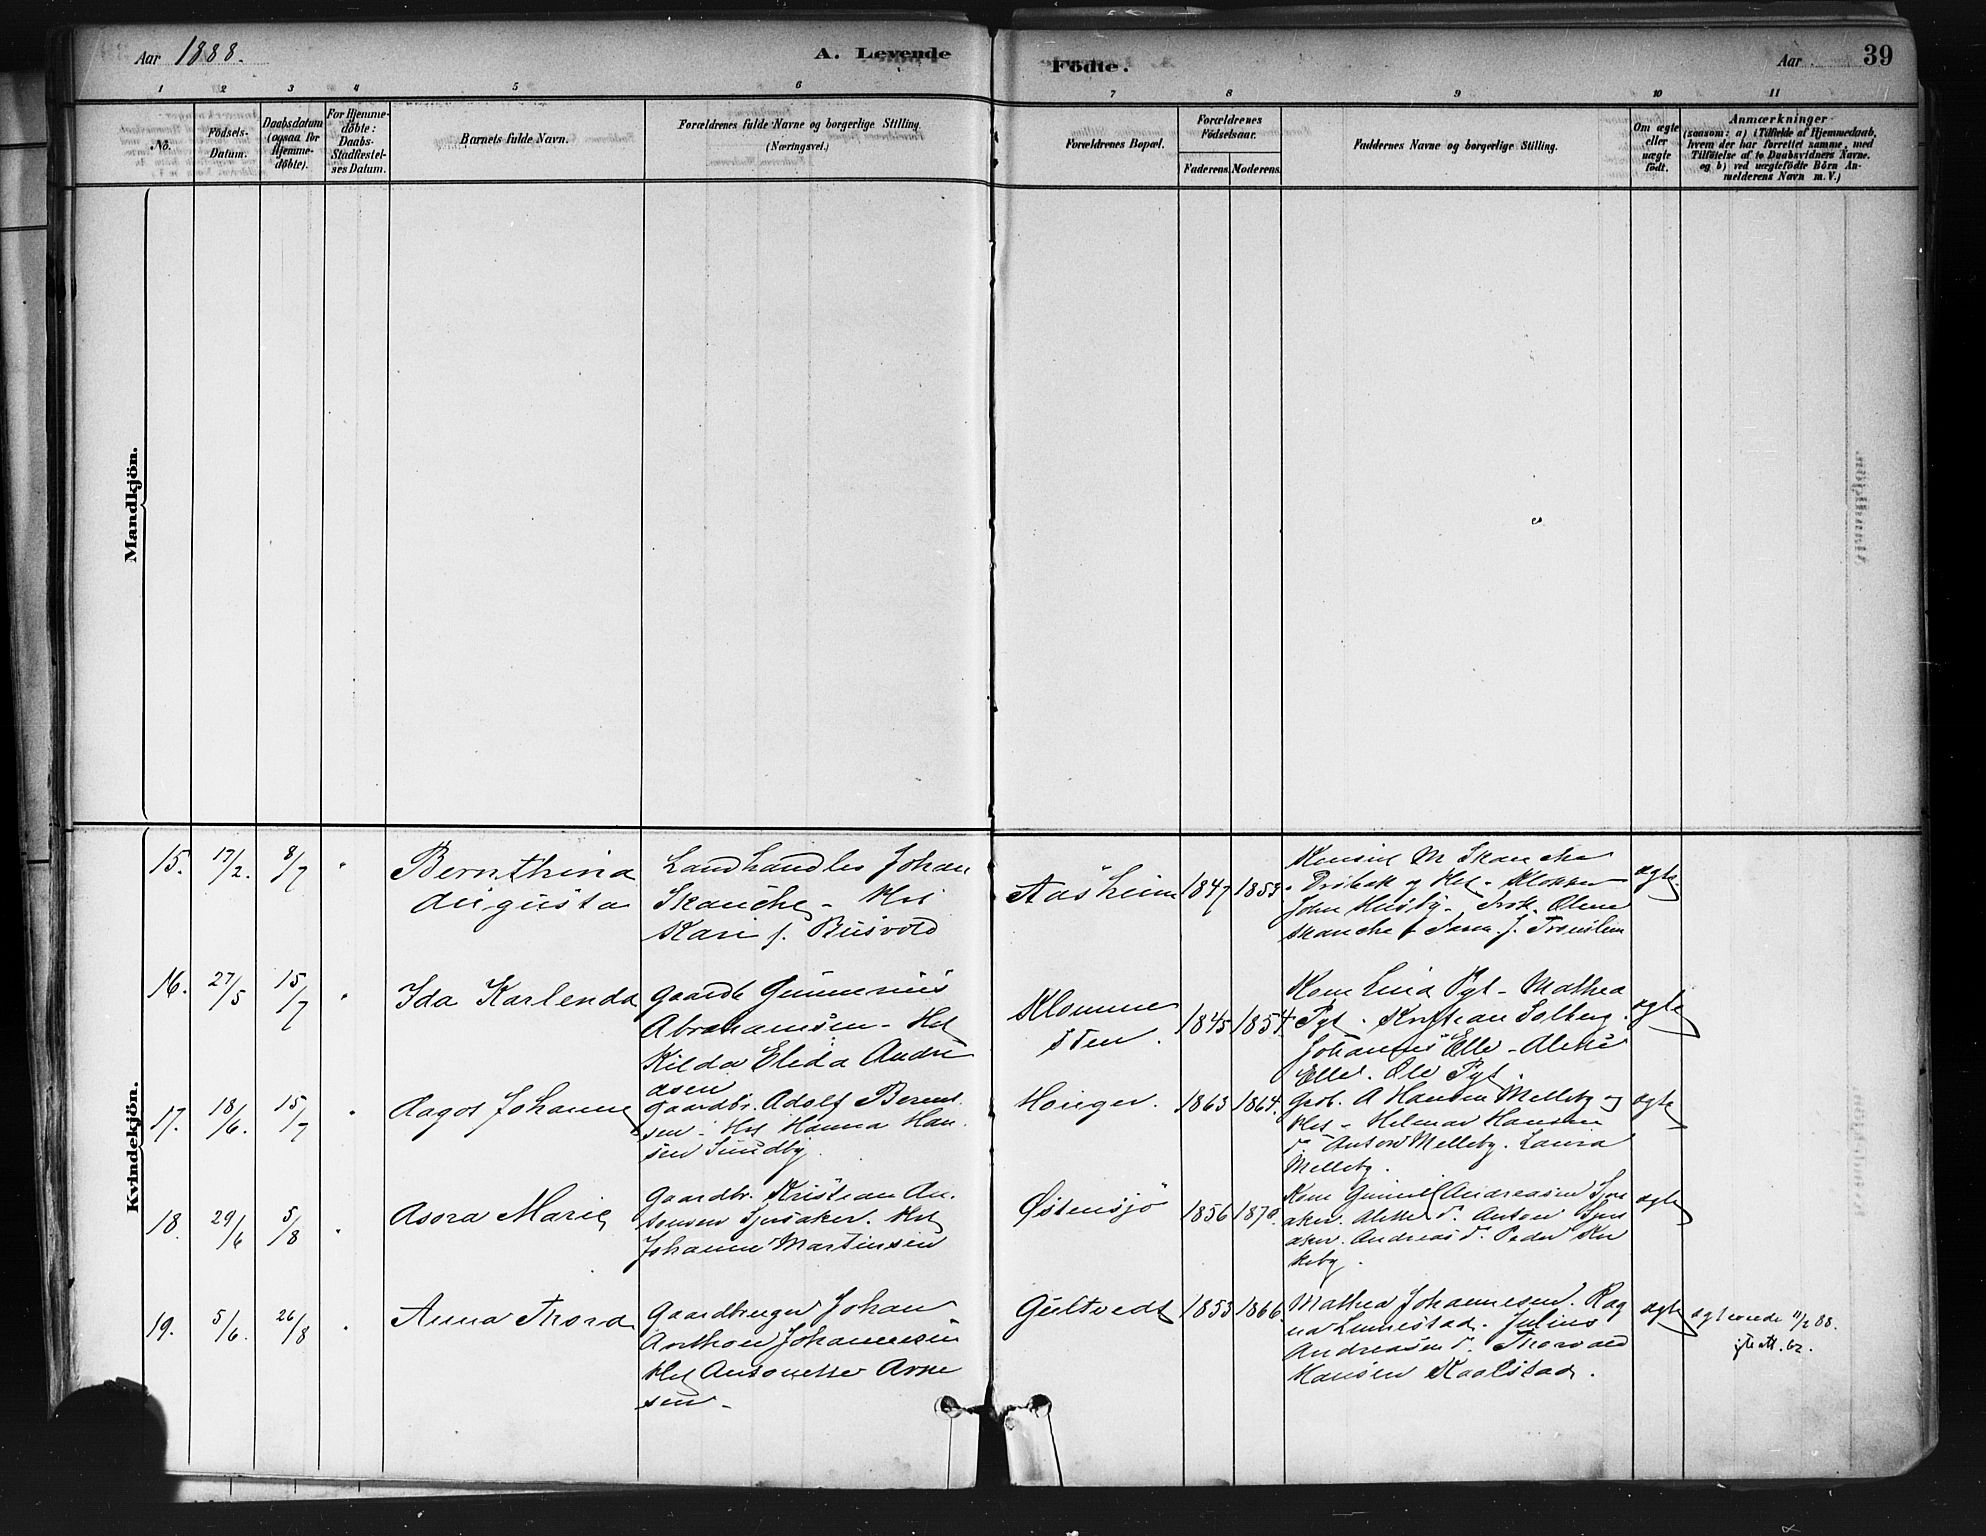 Aar 1888.
A. Levende
Födte.
Aar
39
1 2 3 4 5 6 7 8 9 10 11
No.
Födsels-
Datum.
Daabsdatum
(ogsaa for
Hjemme-
döbte).
For Hjemme-
döbte:
Daabs-
Stadfæstel-
ses Datum.
Barnets fulde Navn.
Forældrenes fulde Navne og borgerlige Stilling.
(Næringsvei.)
Forældrenes Bopæl.
Forældrenes
Födselsaar.
Faderens.
Moderens.
Faddernes Navne og borgerlige Stilling.
Om ægte
eller
uægte
født.
Anmærkninger
(saasom: a) i Tilfælde af Hjemmedaab,
hvem der har forrettet samme, med
Tilföielse af to Daabsvidners Navne.
og b) ved uægtefödte Börn An-
melderens Navn m. V.)
Mandkjön.
Kvindekjön.
15. 17/2. 8/7 "
Bernthina
Augusta
Landhandler Johan
Skanche - Hst
Kari f. Riisvold
Aasheim
1847 1853
M Skanche
Drøbak og Hst. Klokker
John Huseby - Frøk. Oline
Skanche
ægte.
16. 27/5 15/7 "
Ida Karlenda
Gaardb Gunnerius
Abrahamsen - Hst
Hilda Elida Andre
asen
Klomme
sten.
1845 1854
Kone Lina Pyt - Mathea
Pyt. Kristian Solberg.
Johannes Elle - Alette
Elle. Ole Pyt.
ægte
17. 18/6. 15/7 "
Aagot Johanne
Gaardbr. Adolf Bernt
sen - Hst Hanna Han
sen Sundby
Houger.
1863 1864.
Grb. A Hansen Melleby og
Hst - Helmar Hansen
Anton Melleby. Laura
Melleby.
ægte
18. 29/6 5/8 "
Asora Marie
Gaardbr. Kristian An
tonsen Sjøsaker. Hst
Johanne Martinsen
Østensjø
1856 1870.
Kone Andreasen Sjøs
aker. Alette do. Anton Sjøs
aker. Andreas do. Peder
keby.
ægte
19. 5/6. 26/8 "
Anna Thora
Gaardbruger Johan
Anthon Johannesen
Hst Antonette Arne
sen -
Gultvedt
1853 1866.
Mathea Johannesen. Rag
na Lunnestad. Julius
Andreasen do. Thorvald
Hansen Kaalstad.
ægte
ægteviede 11/2 88.